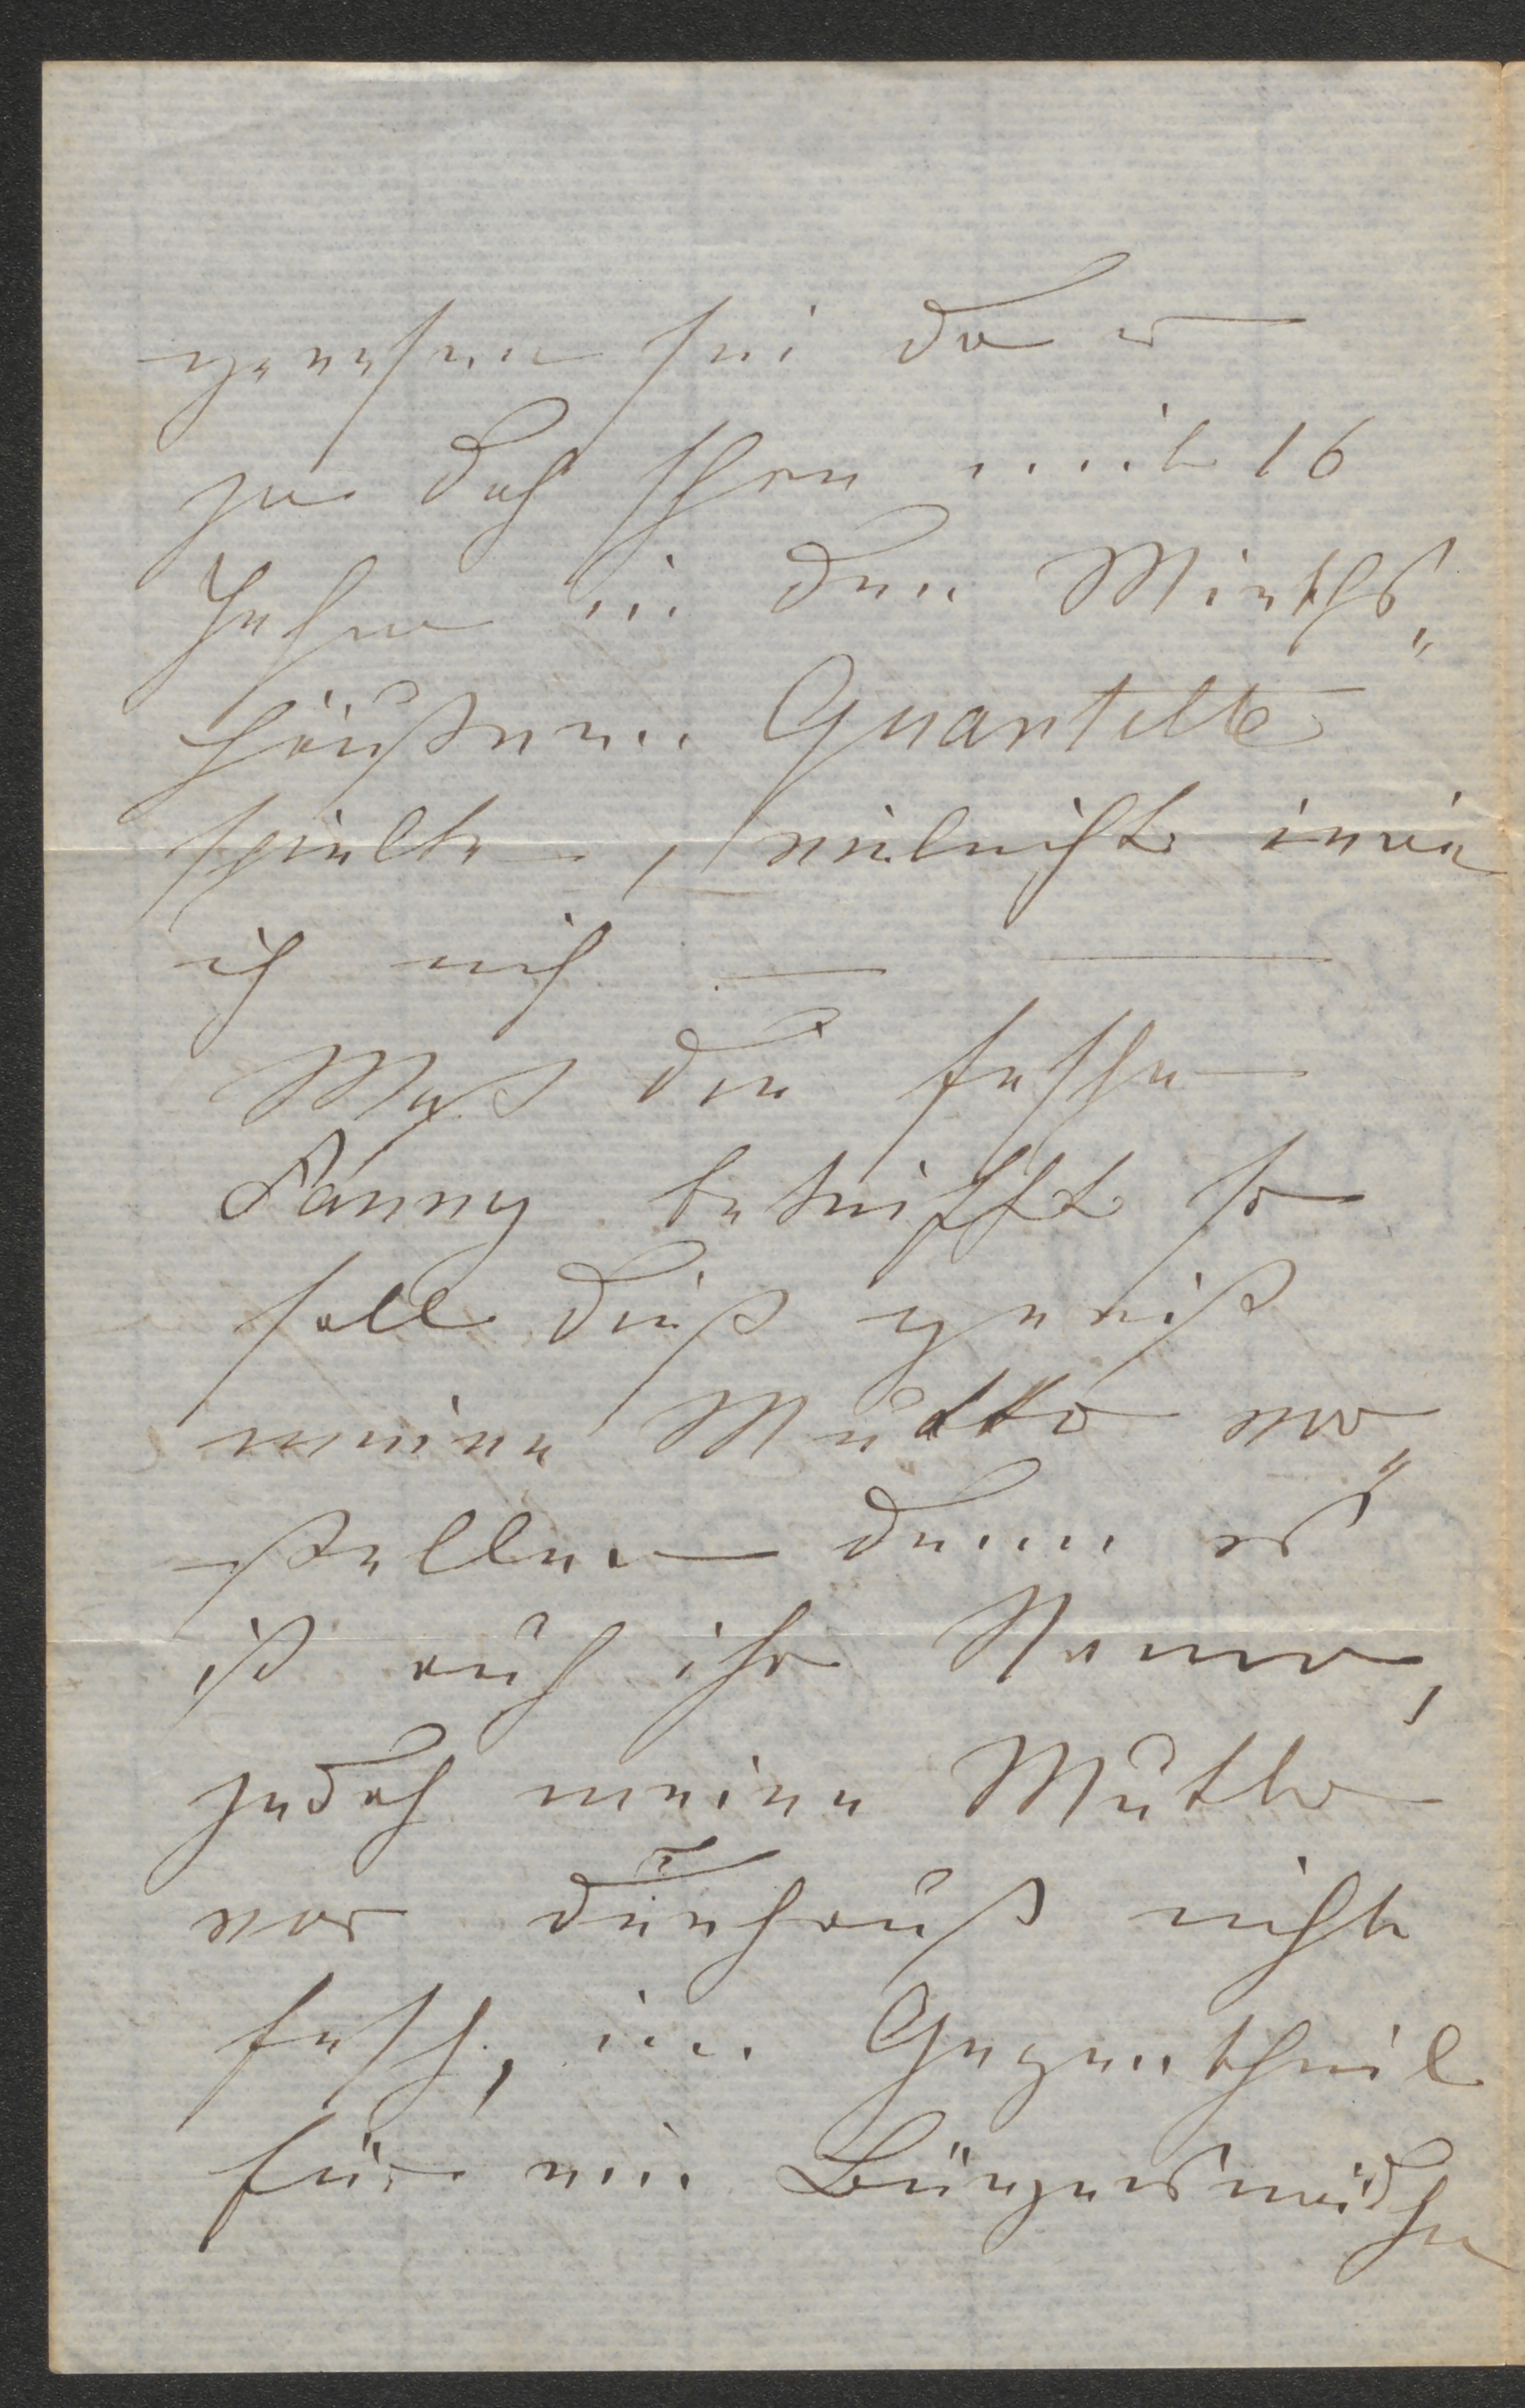 gewesen sei da er
ja doch schon mit 16
Jahren in den Wirths„
häusern Quartette
spielte, vieleicht irre
ich mich — —
Was die fesche
Fanny betrifft so
soll dieß gewiß
meine Mutter vor„
stellen denn es
ist auch ihr Name,
jedoch meine Mutter
war durchaus nicht
fesch, im Gegentheil
für ein Bürgersmädchen